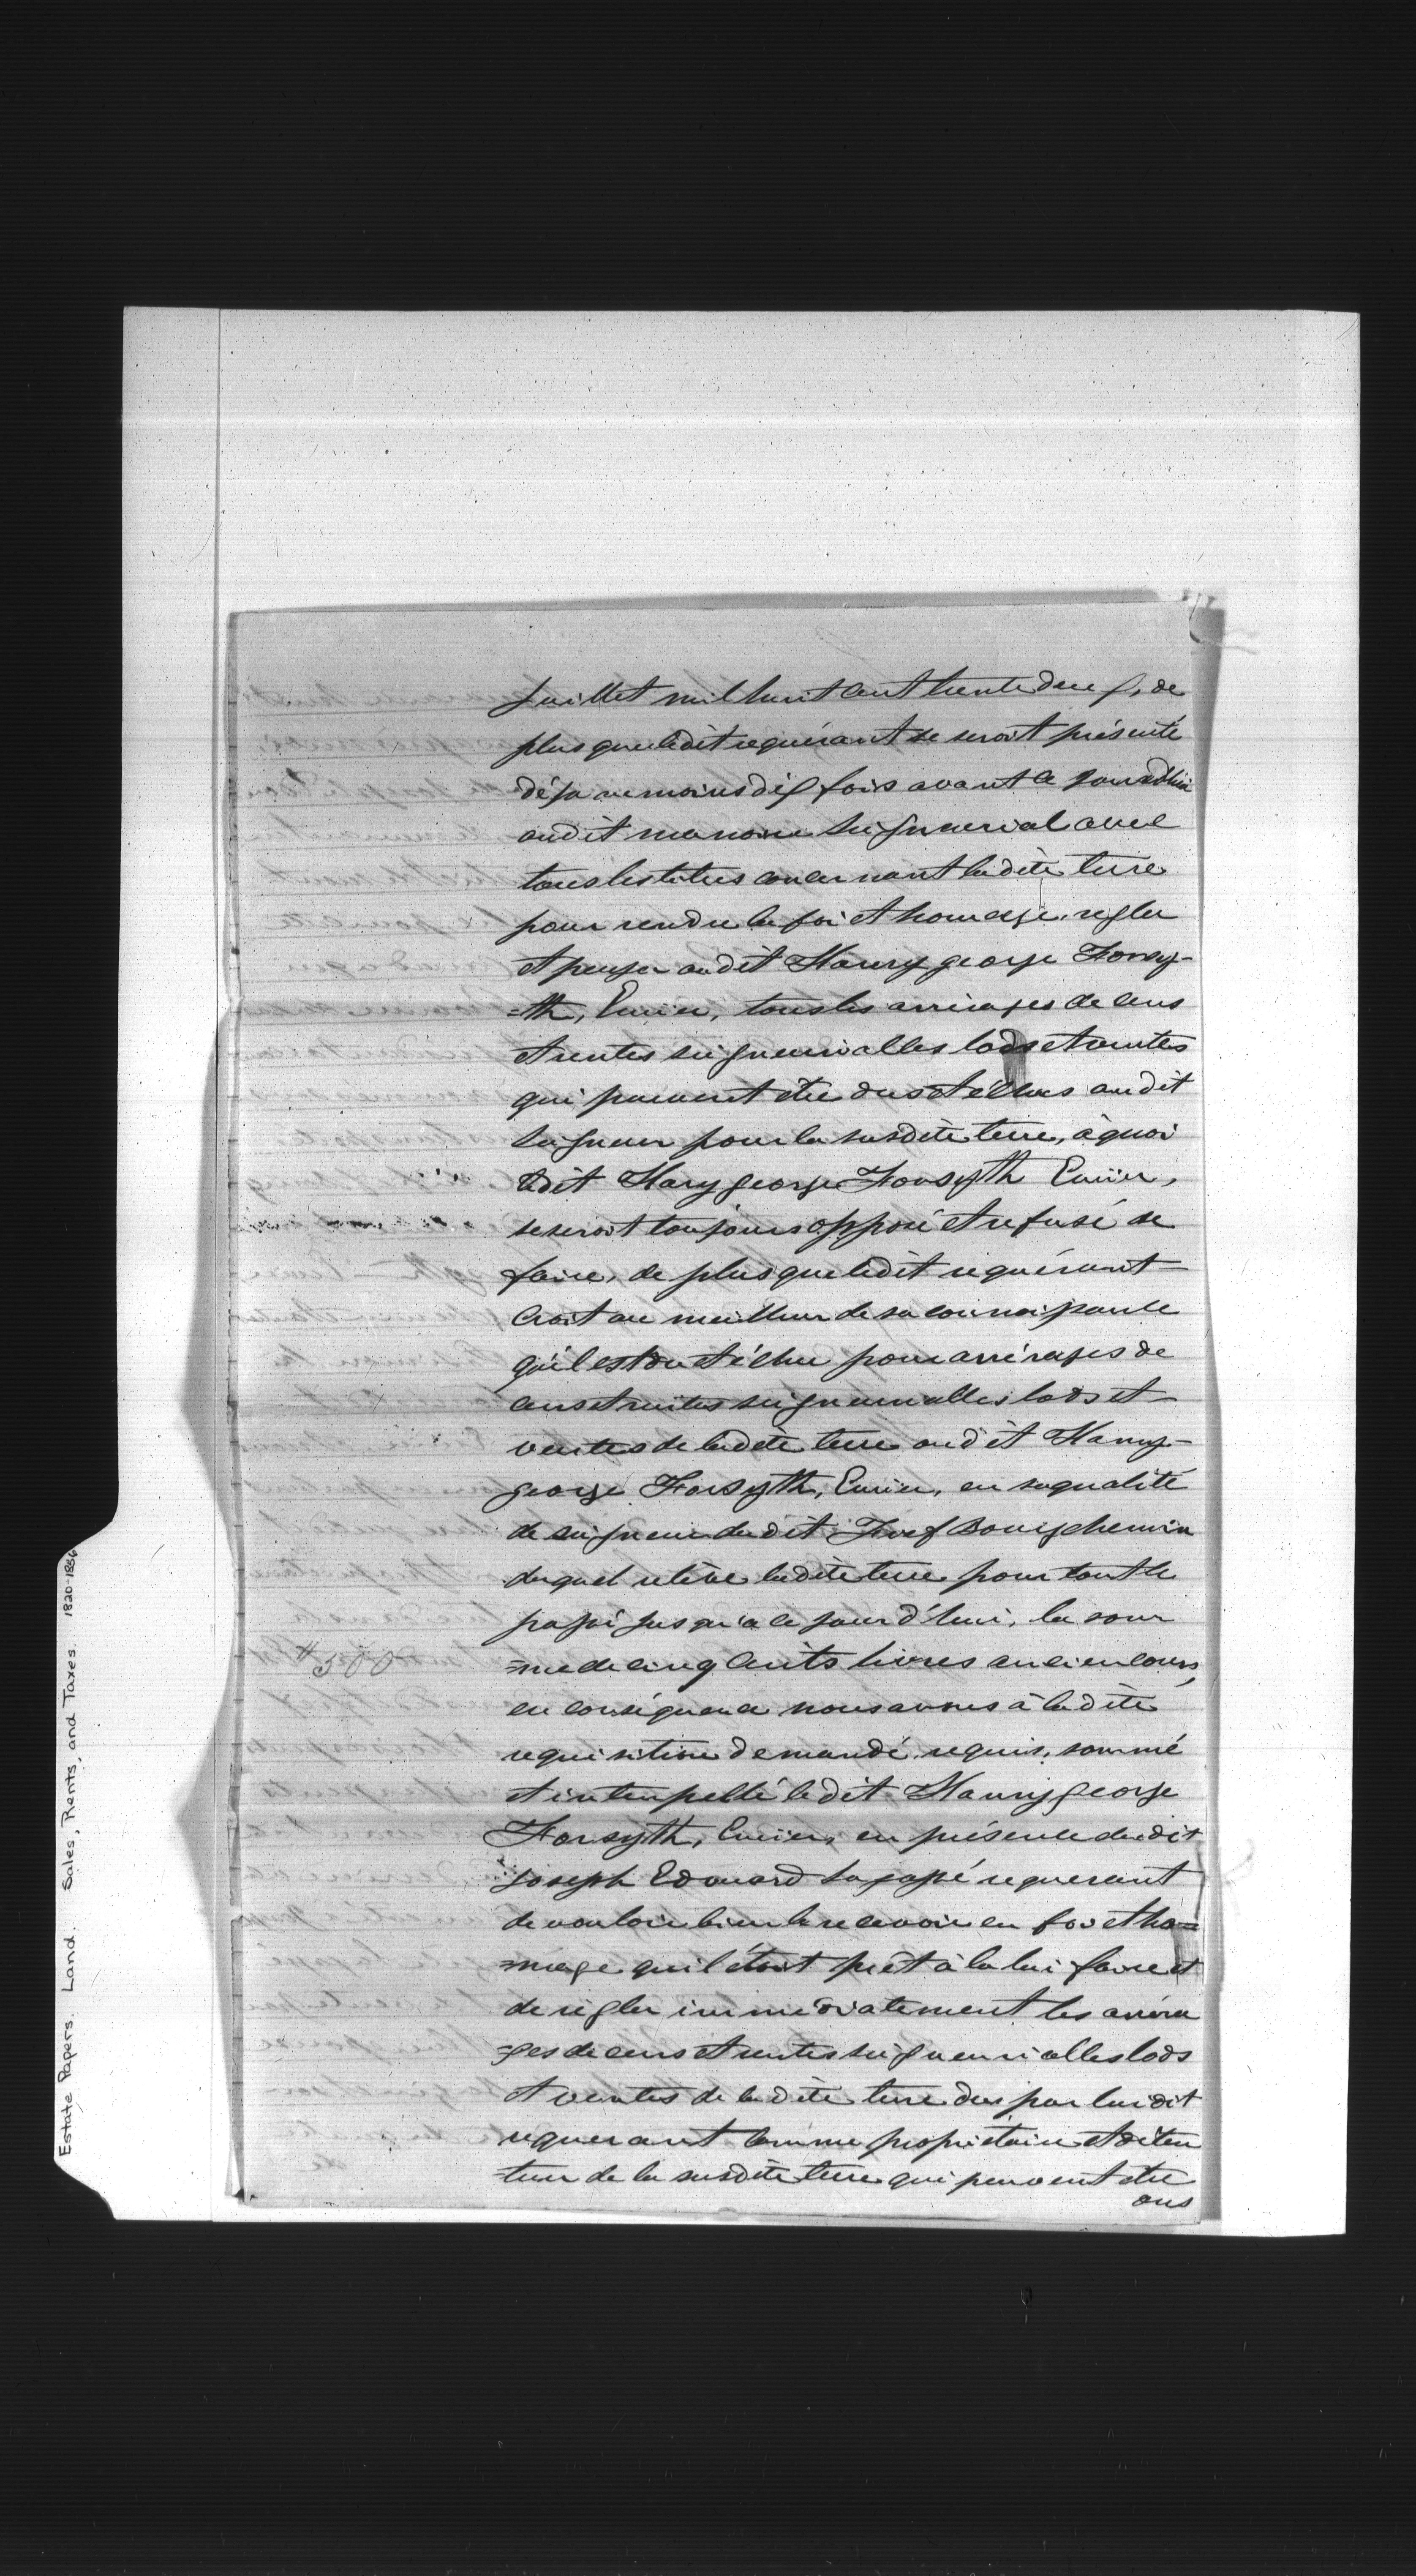 Juillet mil huit cent trente deux, de
plus que ledit requérant se seroit présenté
déja au moins dix fois avant ce jourdhui
audit manoir Seigneurial avec
tous les titres concernant ladite terre
pour rendre la foi et homage, regler
et payer audit Hanry george Forsy-
=th, Ecuier, tous les arrérages de cens
et rentes seigneurialles lods et ventes
qui peuvent être dus et échus audit
Seigneur pour la susdite terre, à quoi
ledit Hary george Forsyth Ecuier,
se seroit toujours opposé et refusé de
faire, de plus que ledit requérant
croit au meilleur de sa connoissance
qu'il est du et échu pour arrérages de
cens et rentes seigneurialles lods et
ventes de ladite terre audit Hanry
george Forsyth, Ecuier, en sa qualité
de seigneur dudit Fief Bourgchemin
duquel relève ladite terre pour tout le
passé jusqu'a ce jour d'hui, la som
=me de cinq cents livres ancien cours,
# 500
en conséquence nous avons à ladite
requisition demandé, requis, sommé
et interpellé ledit Hanry george
Forsyth, Ecuier, en présence dudit
Joseph Edouard requerant
de vouloir bien le recevoir en foi et ho=
=mage qu'il étoit prêt à la lui faire et
de régler immédiatement les arréra
=ges de cens et rentes seigneurialles lods
et ventes de ladite terre dus par lui dit
requerant comme propriétaire et déten
=teur de la susdite terre qui peuvent être
dus
Estate Papers. Land. Sales, Rents, and Taxes 1820-1856